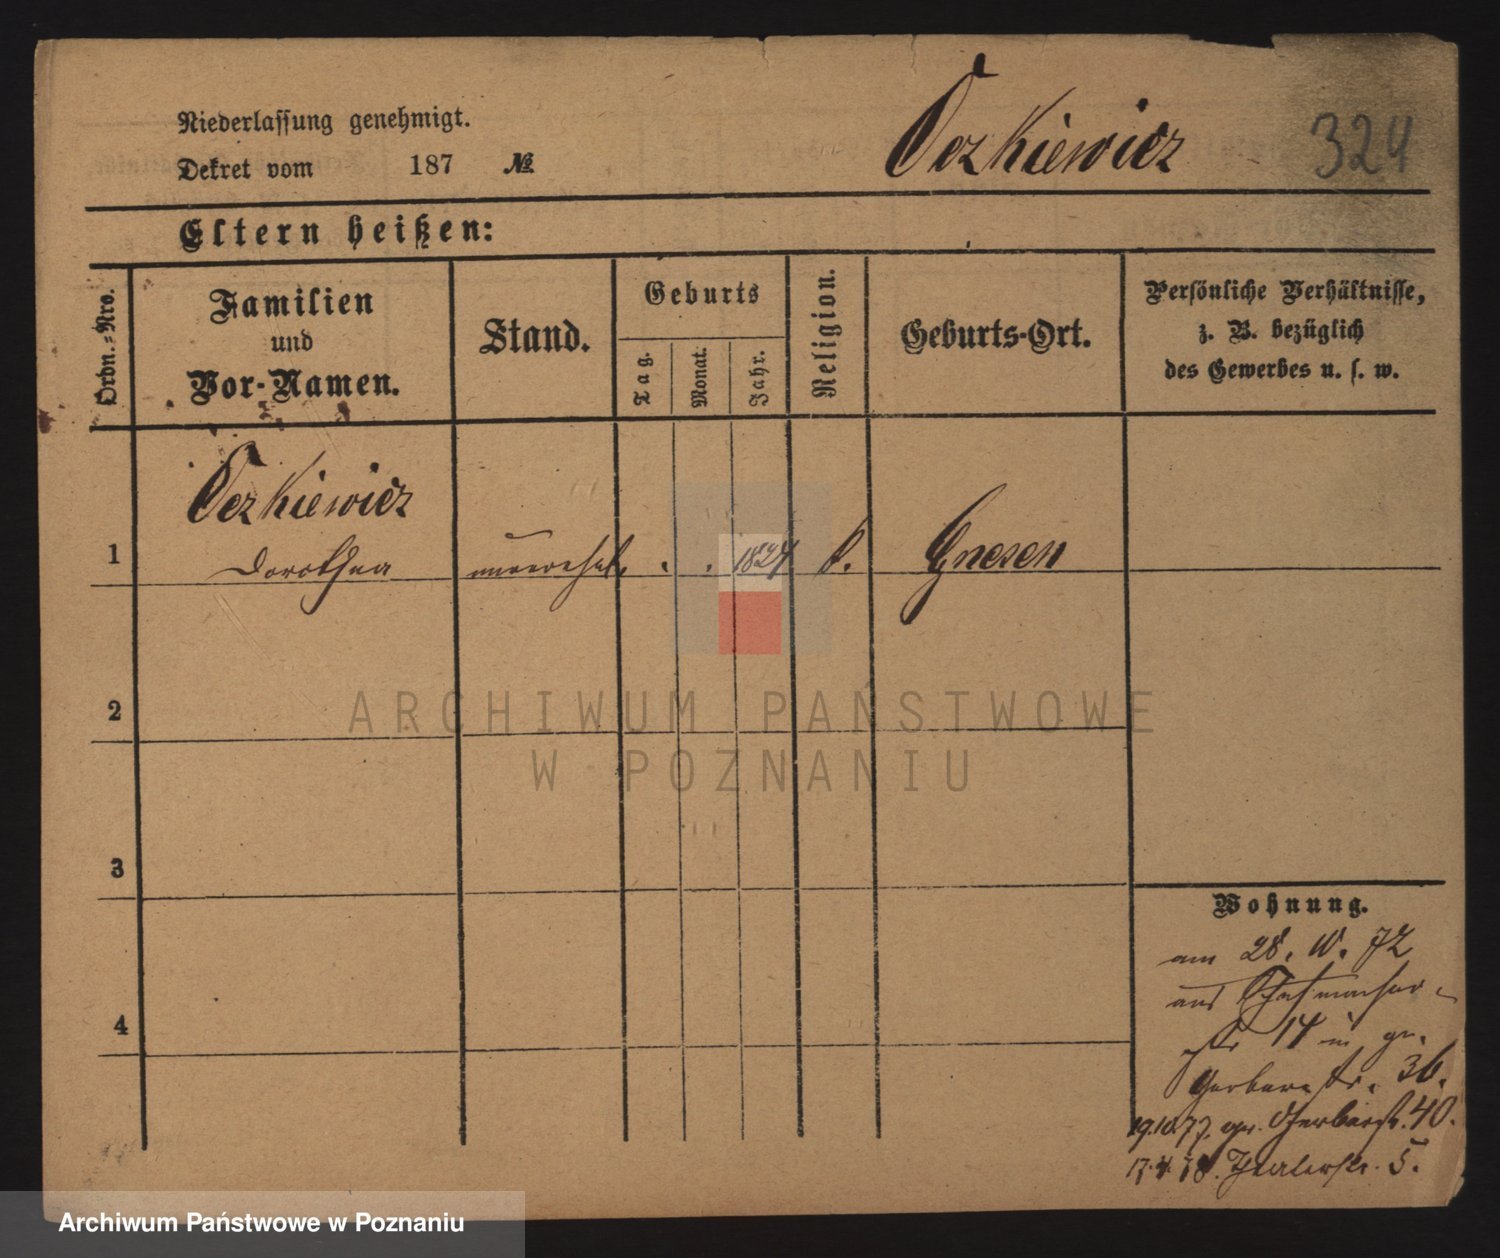 Niederlassung genehmigt.
Dekret vom 187 №
Oczkiewicz
324
Eltern heißen:
Ordn.-Nro.
Familien
und
Vor-Namen.
Stand.
Geburts
Tag.
Monat.
Jahr.
Religion.
Geburts-Ort.
Persönliche Verhältnisse,
z. B. bezüglich
des Gewerbes u. s. w.
1
Oczkiewicz
Dorothea
unverehel.
1824
k.
Gnesen
2
3
4
Wohnung.
am 28. 10. 72
aus Schuhmacher-
str 14 in gr.
Gerberstr. 36.
19.10.77. gr. Gerberstr. 40.
17.4.78. Thealerstr. 5.
ARCHIWUM PAŃSTWOWE
W POZNANIU
Archiwum Państwowe w Poznaniu